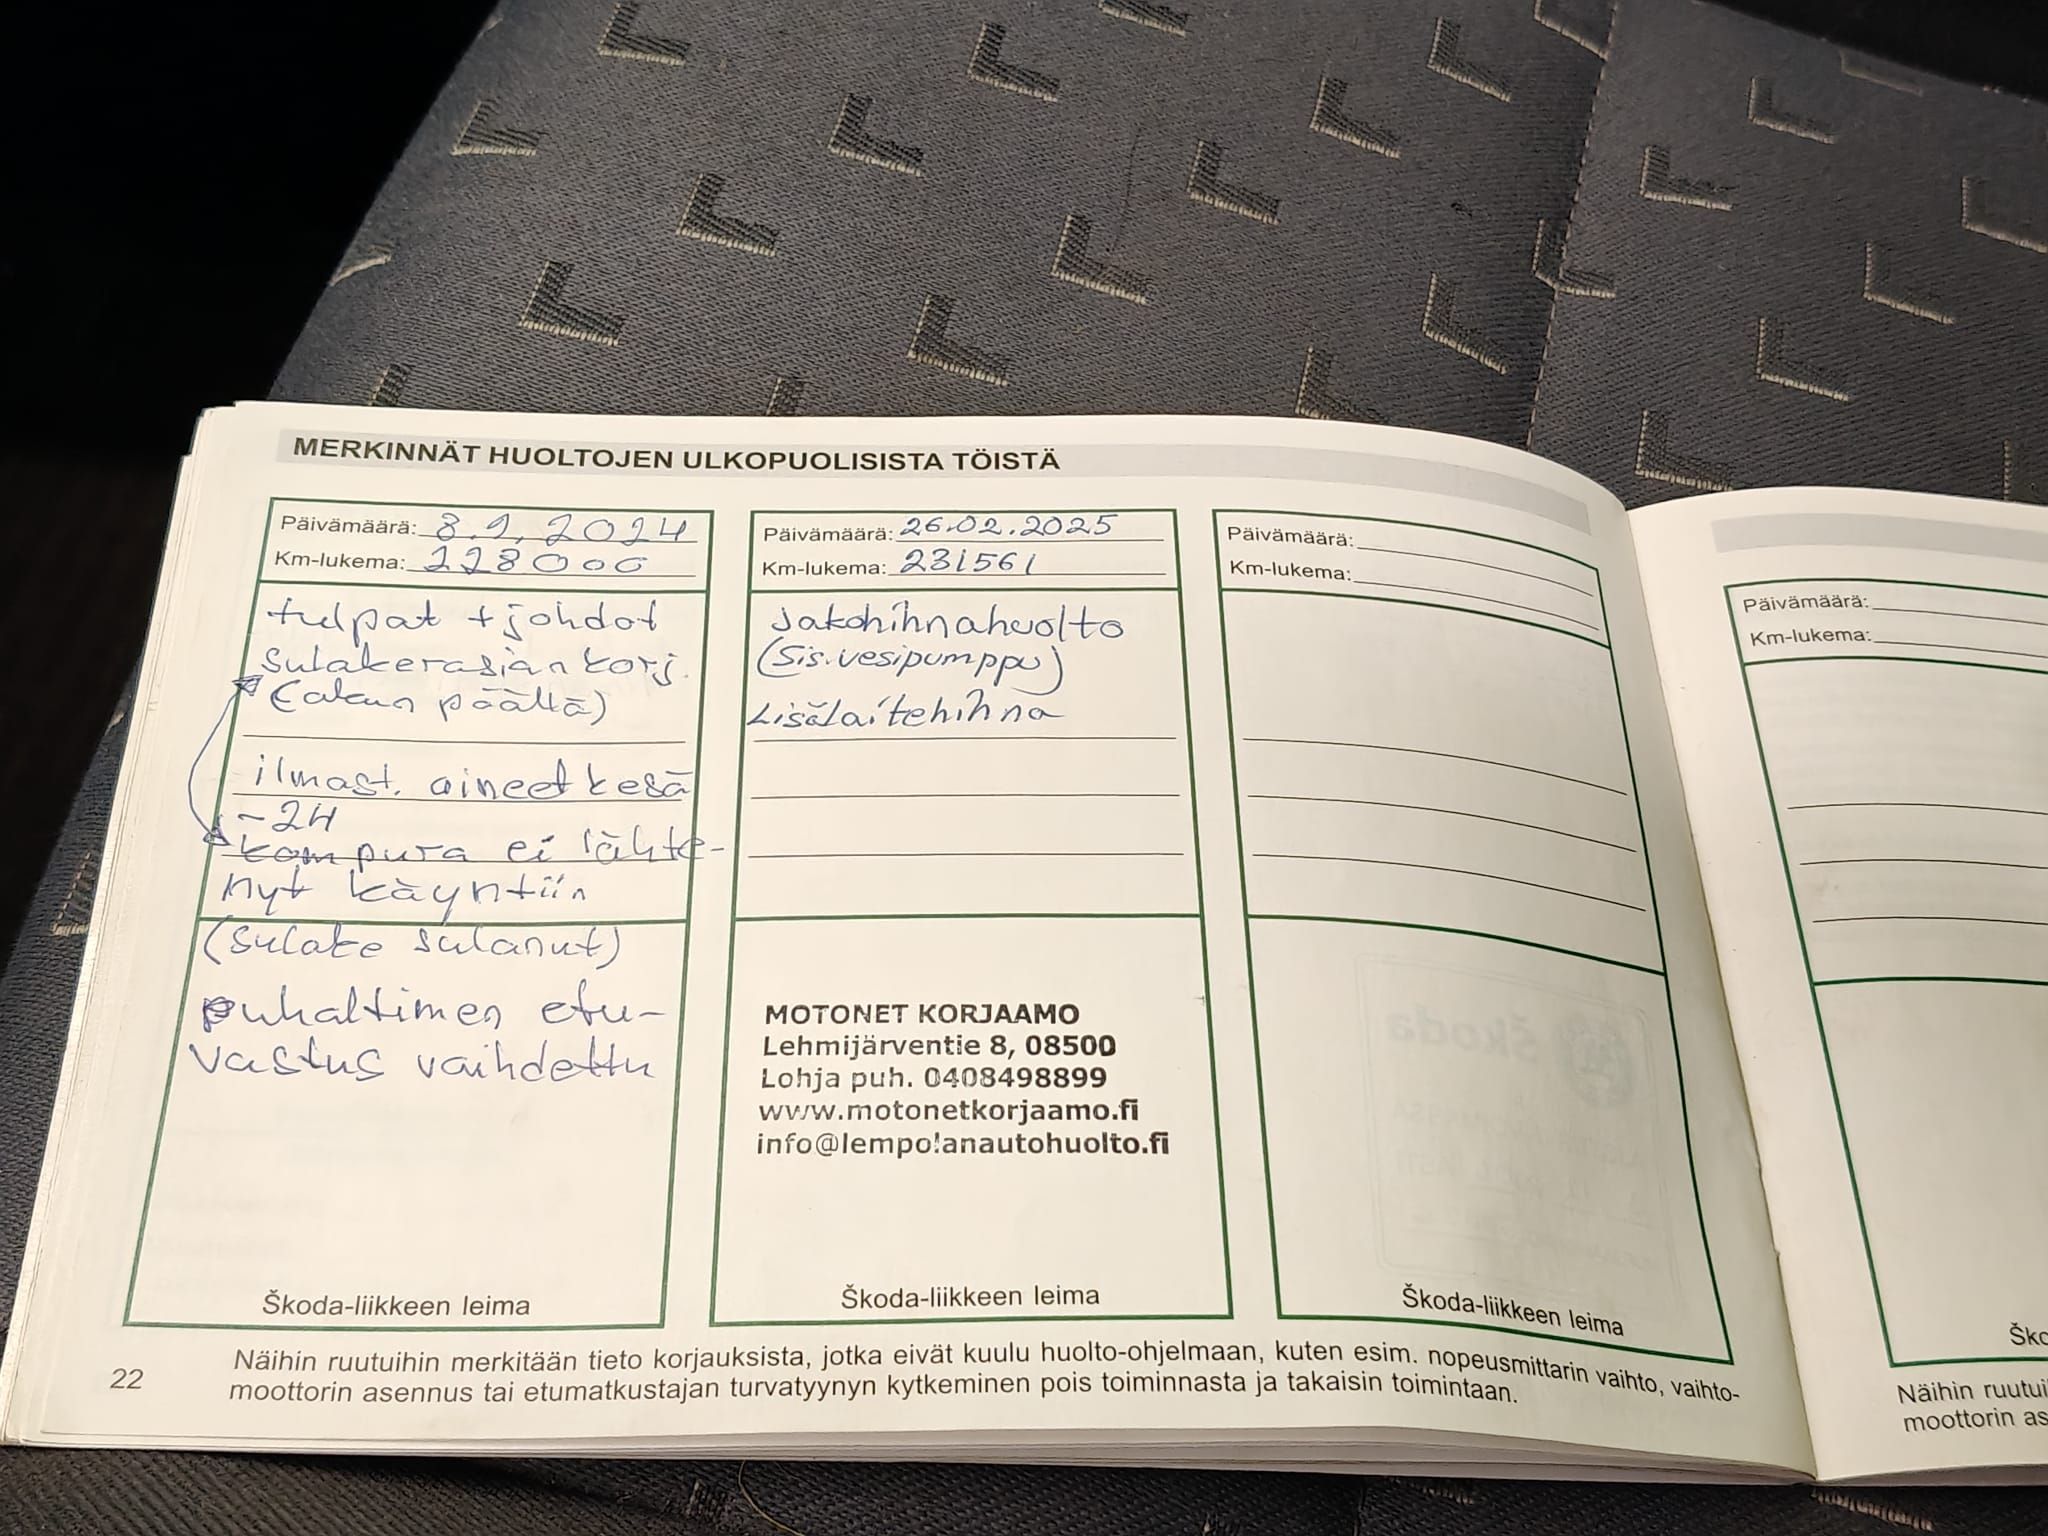 MERKINNÄT HUOLTOJEN ULKOPUOLISISTA TÖISTÄ
Päivämäärä: 8.9.2024
Km-lukema: 228000
tulpat + johdot
sulakerasian korj.
(akun päältä)
ilmast. aineet kesä
-24
kompura ei lähte-
nyt käyntiin
(sulake sulanut)
puhaltimen etu-
vastus vaihdettu
Škoda-liikkeen leima
Päivämäärä: 26.02.2025
Km-lukema: 231561
Jakohihnahuolto
(Sis. vesipumppu)
Lisälaitehihna
MOTONET KORJAAMO
Lehmijärventie 8, 08500
Lohja puh. 0408498899
www.motonetkorjaamo.fi
info@lempolanautohuolto.fi
Škoda-liikkeen leima
Päivämäärä:
Km-lukema:
Škoda-liikkeen leima
22
Näihin ruutuihin merkitään tieto korjauksista, jotka eivät kuulu huolto-ohjelmaan, kuten esim. nopeusmittarin vaihto, vaihto-
moottorin asennus tai etumatkustajan turvatyynyn kytkeminen pois toiminnasta ja takaisin toimintaan.
Päivämäärä:
Km-lukema:
Näihin
moottorin